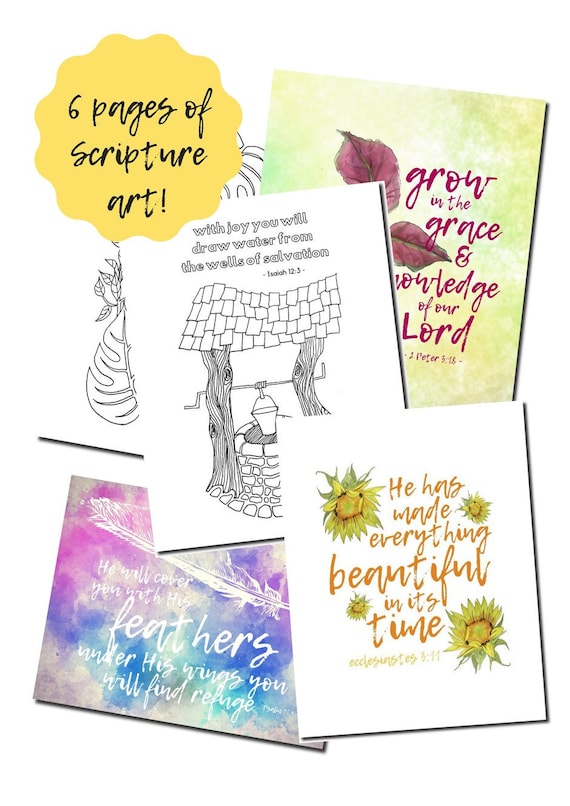 6 pages of
scripture
art!
grow
in the
grace
&
knowledge
of our
Lord
- 2 Peter 3:18 -
with joy you will
draw water from
the wells of salvation
- Isaiah 12:3 -
He has
made
everything
beautiful
in its
time
ecclesiastes 3:11
He will cover
you with His
feathers
under His wings you
will find refuge
Psalm